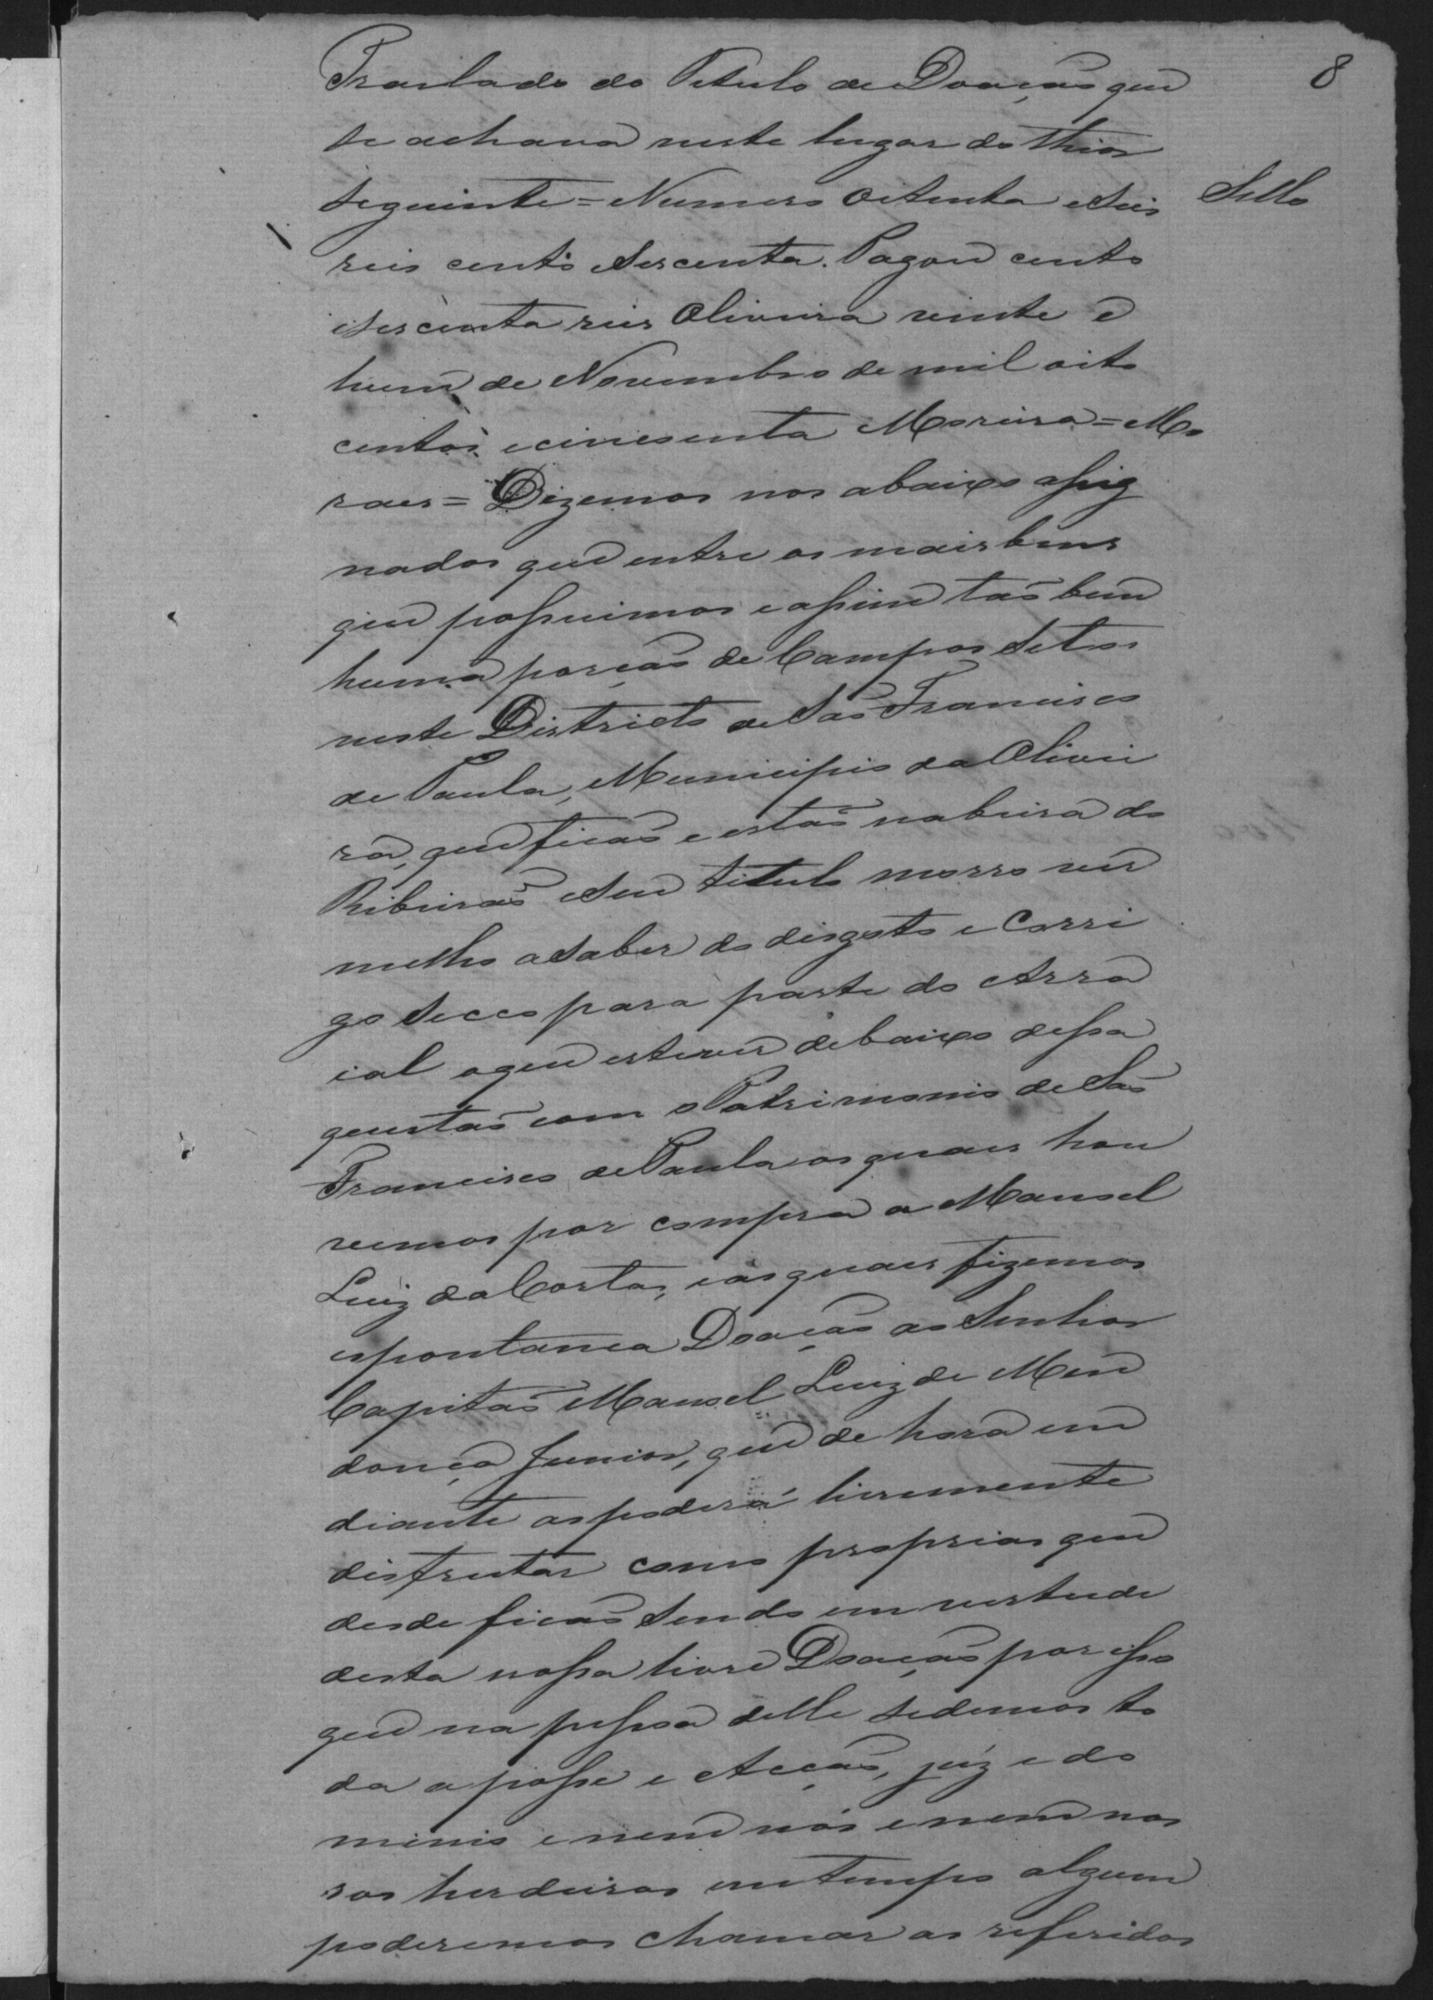 8
Traslado do Titulo de Doação que
se achava neste lugar do thior
seguinte = Numero oitenta e Seis
Sello
reis cento e Secenta. Pagou cento
e secenta reis Oliveira vinte e
hum de Novembro de mil oito
centos e cincoenta Moreira = Mo
raes = Dizemos nos abaixo assig
nados que entre os mais bens
que possuimos e assim tão bem
huma porção de Campos Sitos
neste Districto de São Francisco
de Paula, Municipio da Olivei
ra, que ficão e estão na beira do
Ribeirão e Seu titulo morro ver
melho a Saber do disgoto e Corri
go Secco para parte do Arra
ial o que estever debaixo dessa
questão com o Patrimonio de São
Francisco de Paula os quaes hou
vemos por compra a Manoel
Luiz da Costa, e as quaes fizemos
espontanea Doação ao Senhor
Capitão Manoel Luiz de Men
donça Junior, que de hora em
diante as poderá livremente
disfrutar como proprias que
desde ficão Sendo em vertude
desta nossa livre Doação por isso
que na pessoa delle sedemos to
da a posse e Acção, juz e do
minio e nem nós e nem nos
sos herdeiros em tempo algum
poderemos chamar as referidas